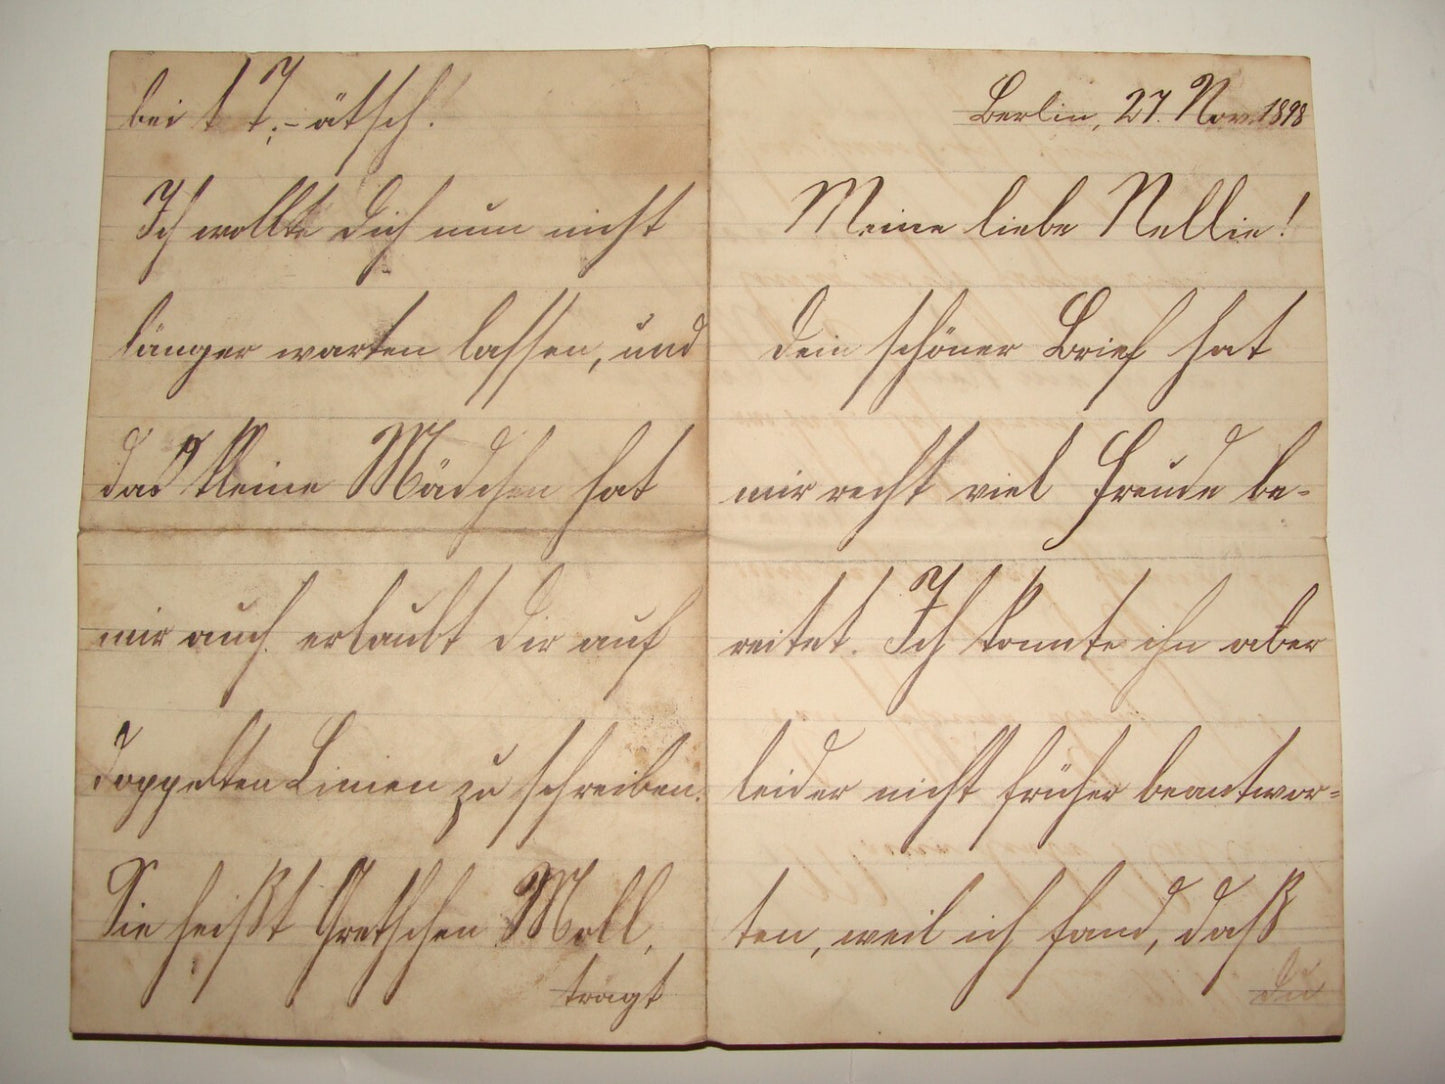 Berlin, 27. Nov. 1898
Meine liebe Nellie!
Dein schöner Brief hat
mir recht viel Freude be-
reitet. Ich konnte ihn aber
leider nicht früher beantwor-
ten, weil ich fand, daß
du
bei ätsch!
Ich wollte dich nun nicht
länger warten lassen, und
das kleine Mädchen hat
mir auch erlaubt dir auf
doppelten Linien zu schreiben.
Sie heißt Gretchen Moll,
tragt